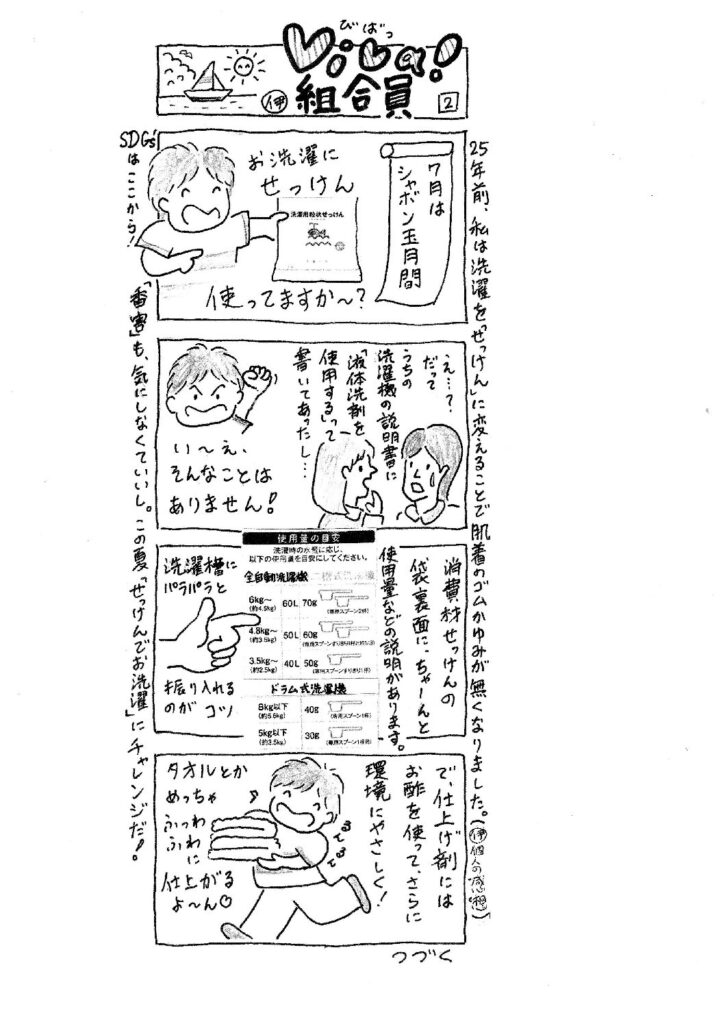 びばっ
Viba!
組合員
伊
2
25年前、私は洗濯を「せっけん」に変えることで肌着のゴムかゆみが無くなりました。(伊個人の感想)
7月は
シャボン玉月間
お洗濯に
せっけん
洗濯用粉状せっけん
使ってますか〜?
え…?
だって
うちの
洗濯機の説明書に
「液体洗剤を
使用する」って
書いてあったし…
い〜え、
そんなことは
ありません!
消費材せっけんの
袋裏面に、ちゃーんと
使用量などの説明があります。
使用量の目安
洗濯時の水量に応じ、
以下の使用量を目安にしてください。
全自動洗濯機
6kg〜
(約4.5kg)
60L 70g
(専用スプーン2杯)
4.8kg〜
(約3.5kg)
50L 60g
3.5kg〜
(約2.5kg)
40L 50g
ドラム式洗濯機
8kg以下
(約5.6kg)
40g
(専用スプーン1杯)
5kg以下
(約3.5kg)
30g
洗濯槽に
パラパラと
振り入れる
のが コツ
で、仕上げ剤には
お酢を使って、さらに
環境にやさしく!
てるてる
タオルとか
めっちゃ
ふっわ
ふわに
仕上がる
よ〜ん♡
SDGsはここから!
「香害」も、気にしなくていいし。この夏「せっけんでお洗濯」にチャレンジだ!
つづく